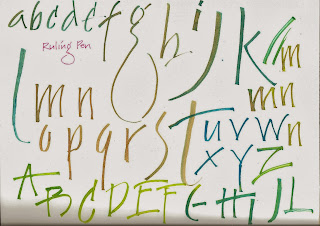 abcdefghijk/m
Ruling Pen
lmn mn
opqrstuvwn
xyz
ABCDEFGHIJL